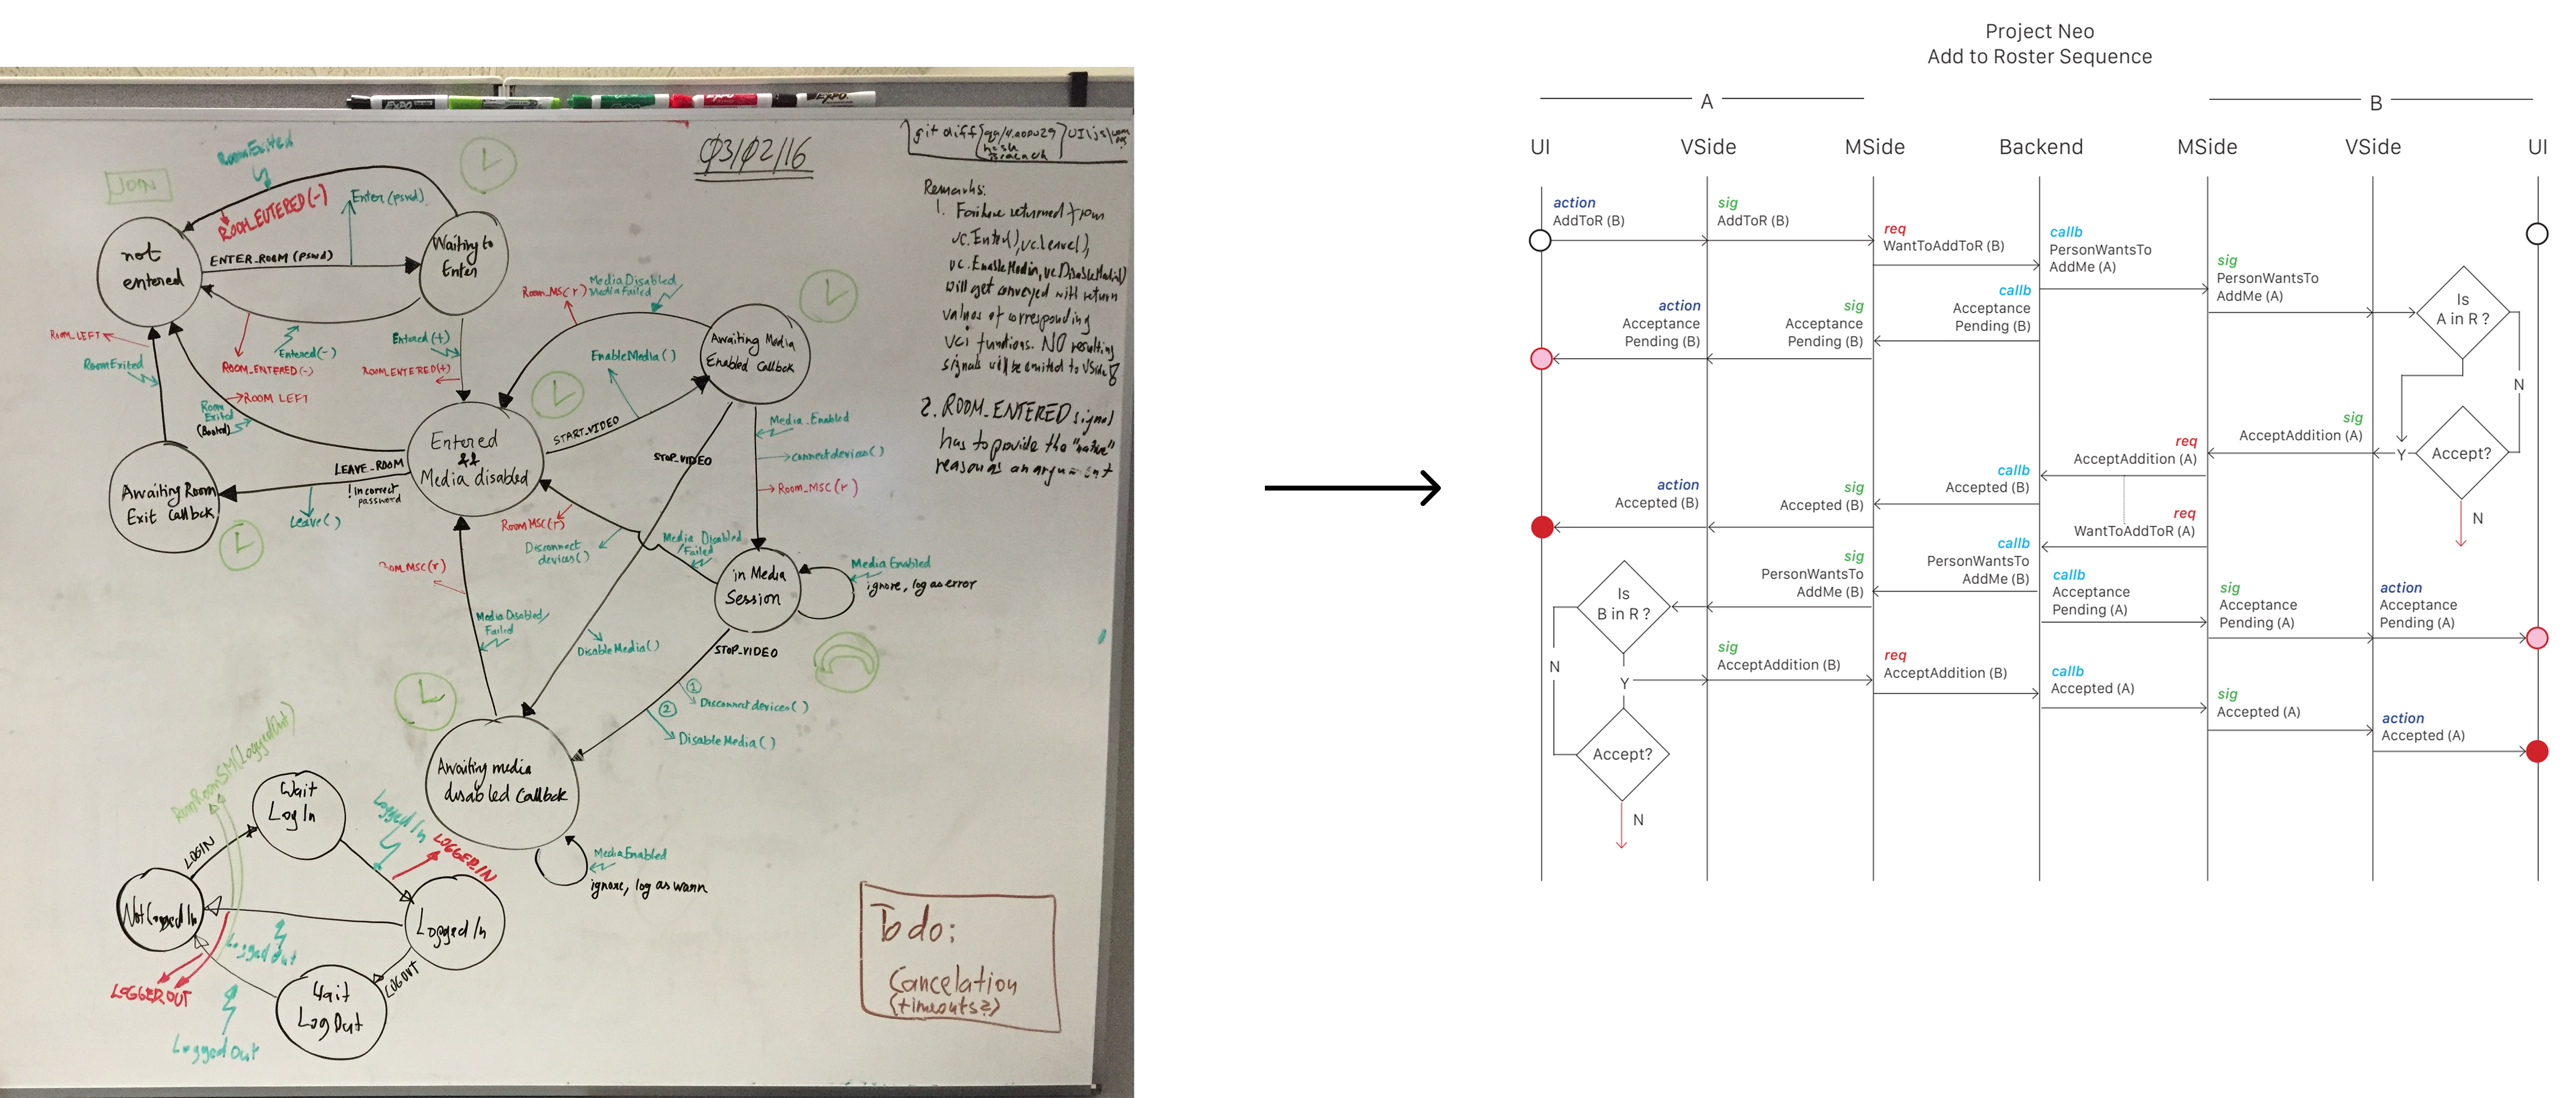 Project Neo
Add to Roster Sequence
EXPO
EXPO
EXPO
03/02/16
git diff
hash
branch
Remarks:
1. Failure returned from
vc.Enter(), vc.leave(),
vc.EnableMedia, vc.DisableMedia()
will get conveyed with return
values of corresponding
vci functions. NO resulting
signals will be emitted to VSide
2. ROOM_ENTERED signal
has to provide the "native"
reason as an argument
JOIN
RoomExited
ROOM_ENTERED(-)
Enter(pswd)
not
entered
ENTER_ROOM (pswd)
Waiting to
Enter
Entered(-)
ROOM_ENTERED(-)
ROOM_LEFT
RoomExited
Room
Exited
(Booted)
ROOM LEFT
Entered(+)
ROOM_ENTERED(+)
Room_MSC(r)
Media Disabled
Media Failed
EnableMedia()
Awaiting Media
Enabled Callbck
START_VIDEO
Entered
&&
Media disabled
LEAVE_ROOM
! incorrect
password
Leave()
Awaiting Room
Exit Callbck
STOP_VIDEO
Media_Enabled
connectdevices()
Room_MSC(r)
RoomMSC(r)
Disconnect
devices()
Media Disabled
/Failed
in Media
Session
Media Enabled
ignore, log as error
Room_MSC(r)
Media Disabled/
Failed
DisableMedia()
STOP_VIDEO
1
Disconnectdevices()
2
DisableMedia()
Awaiting media
disabled Callbck
MediaEnabled
ignore, log as warn
RoomSM(LoggedOut)
Wait
LogIn
LOGIN
Logged In
LOGGEDIN
Not Logged In
Logged In
Logged Out
LOGOUT
LOGGEDOUT
Wait
LogOut
Logged Out
To do:
Cancelation
(timeouts?)
A
B
UI
VSide
MSide
Backend
MSide
VSide
UI
action
AddToR (B)
sig
AddToR (B)
req
WantToAddToR (B)
callb
PersonWantsTo
AddMe (A)
sig
PersonWantsTo
AddMe (A)
Is
A in R ?
N
action
Acceptance
Pending (B)
sig
Acceptance
Pending (B)
callb
Acceptance
Pending (B)
sig
AcceptAddition (A)
Y
Accept?
N
req
AcceptAddition (A)
callb
Accepted (B)
sig
Accepted (B)
action
Accepted (B)
req
WantToAddToR (A)
callb
PersonWantsTo
AddMe (B)
sig
PersonWantsTo
AddMe (B)
Is
B in R ?
callb
Acceptance
Pending (A)
sig
Acceptance
Pending (A)
action
Acceptance
Pending (A)
N
Y
sig
AcceptAddition (B)
req
AcceptAddition (B)
callb
Accepted (A)
sig
Accepted (A)
action
Accepted (A)
Accept?
N